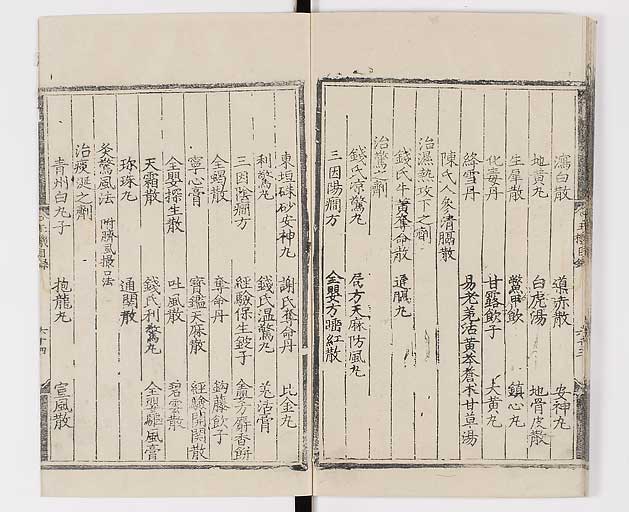 瀉白散 導赤散 安神丸
地黄丸 白虎湯 地骨皮散
生犀散 鱉甲飲 鎮心丸
化毒丹 甘露飲子 大黄丸
絳雪丹 易老羌活黄芩蒼朮甘草湯
陳氏人參清膈散
治濕熱攻下之劑
錢氏牛黄奪命散 通膈丸
治驚之劑
錢氏凉驚丸 居方天麻防風丸
三因陽癎方 全嬰方睡紅散
東垣硃砂安神丸 謝氏奪命丹 比金丸
利驚丸 錢氏温驚丸 羌活膏
三因陰癎方 經驗保生錠子 金方麝香餠
全蝎散 奪命丹 鈎藤飲子
寧心膏 寳鑑天麻散 經驗開関散
全嬰探生散 吐風散 碧雲散
天霜散 錢氏利驚丸 全嬰驅風膏
珎珠丸 通関散
灸驚風法 附臍風撮口法
治痰涎之劑
青州白丸子 抱龍丸 宣風散